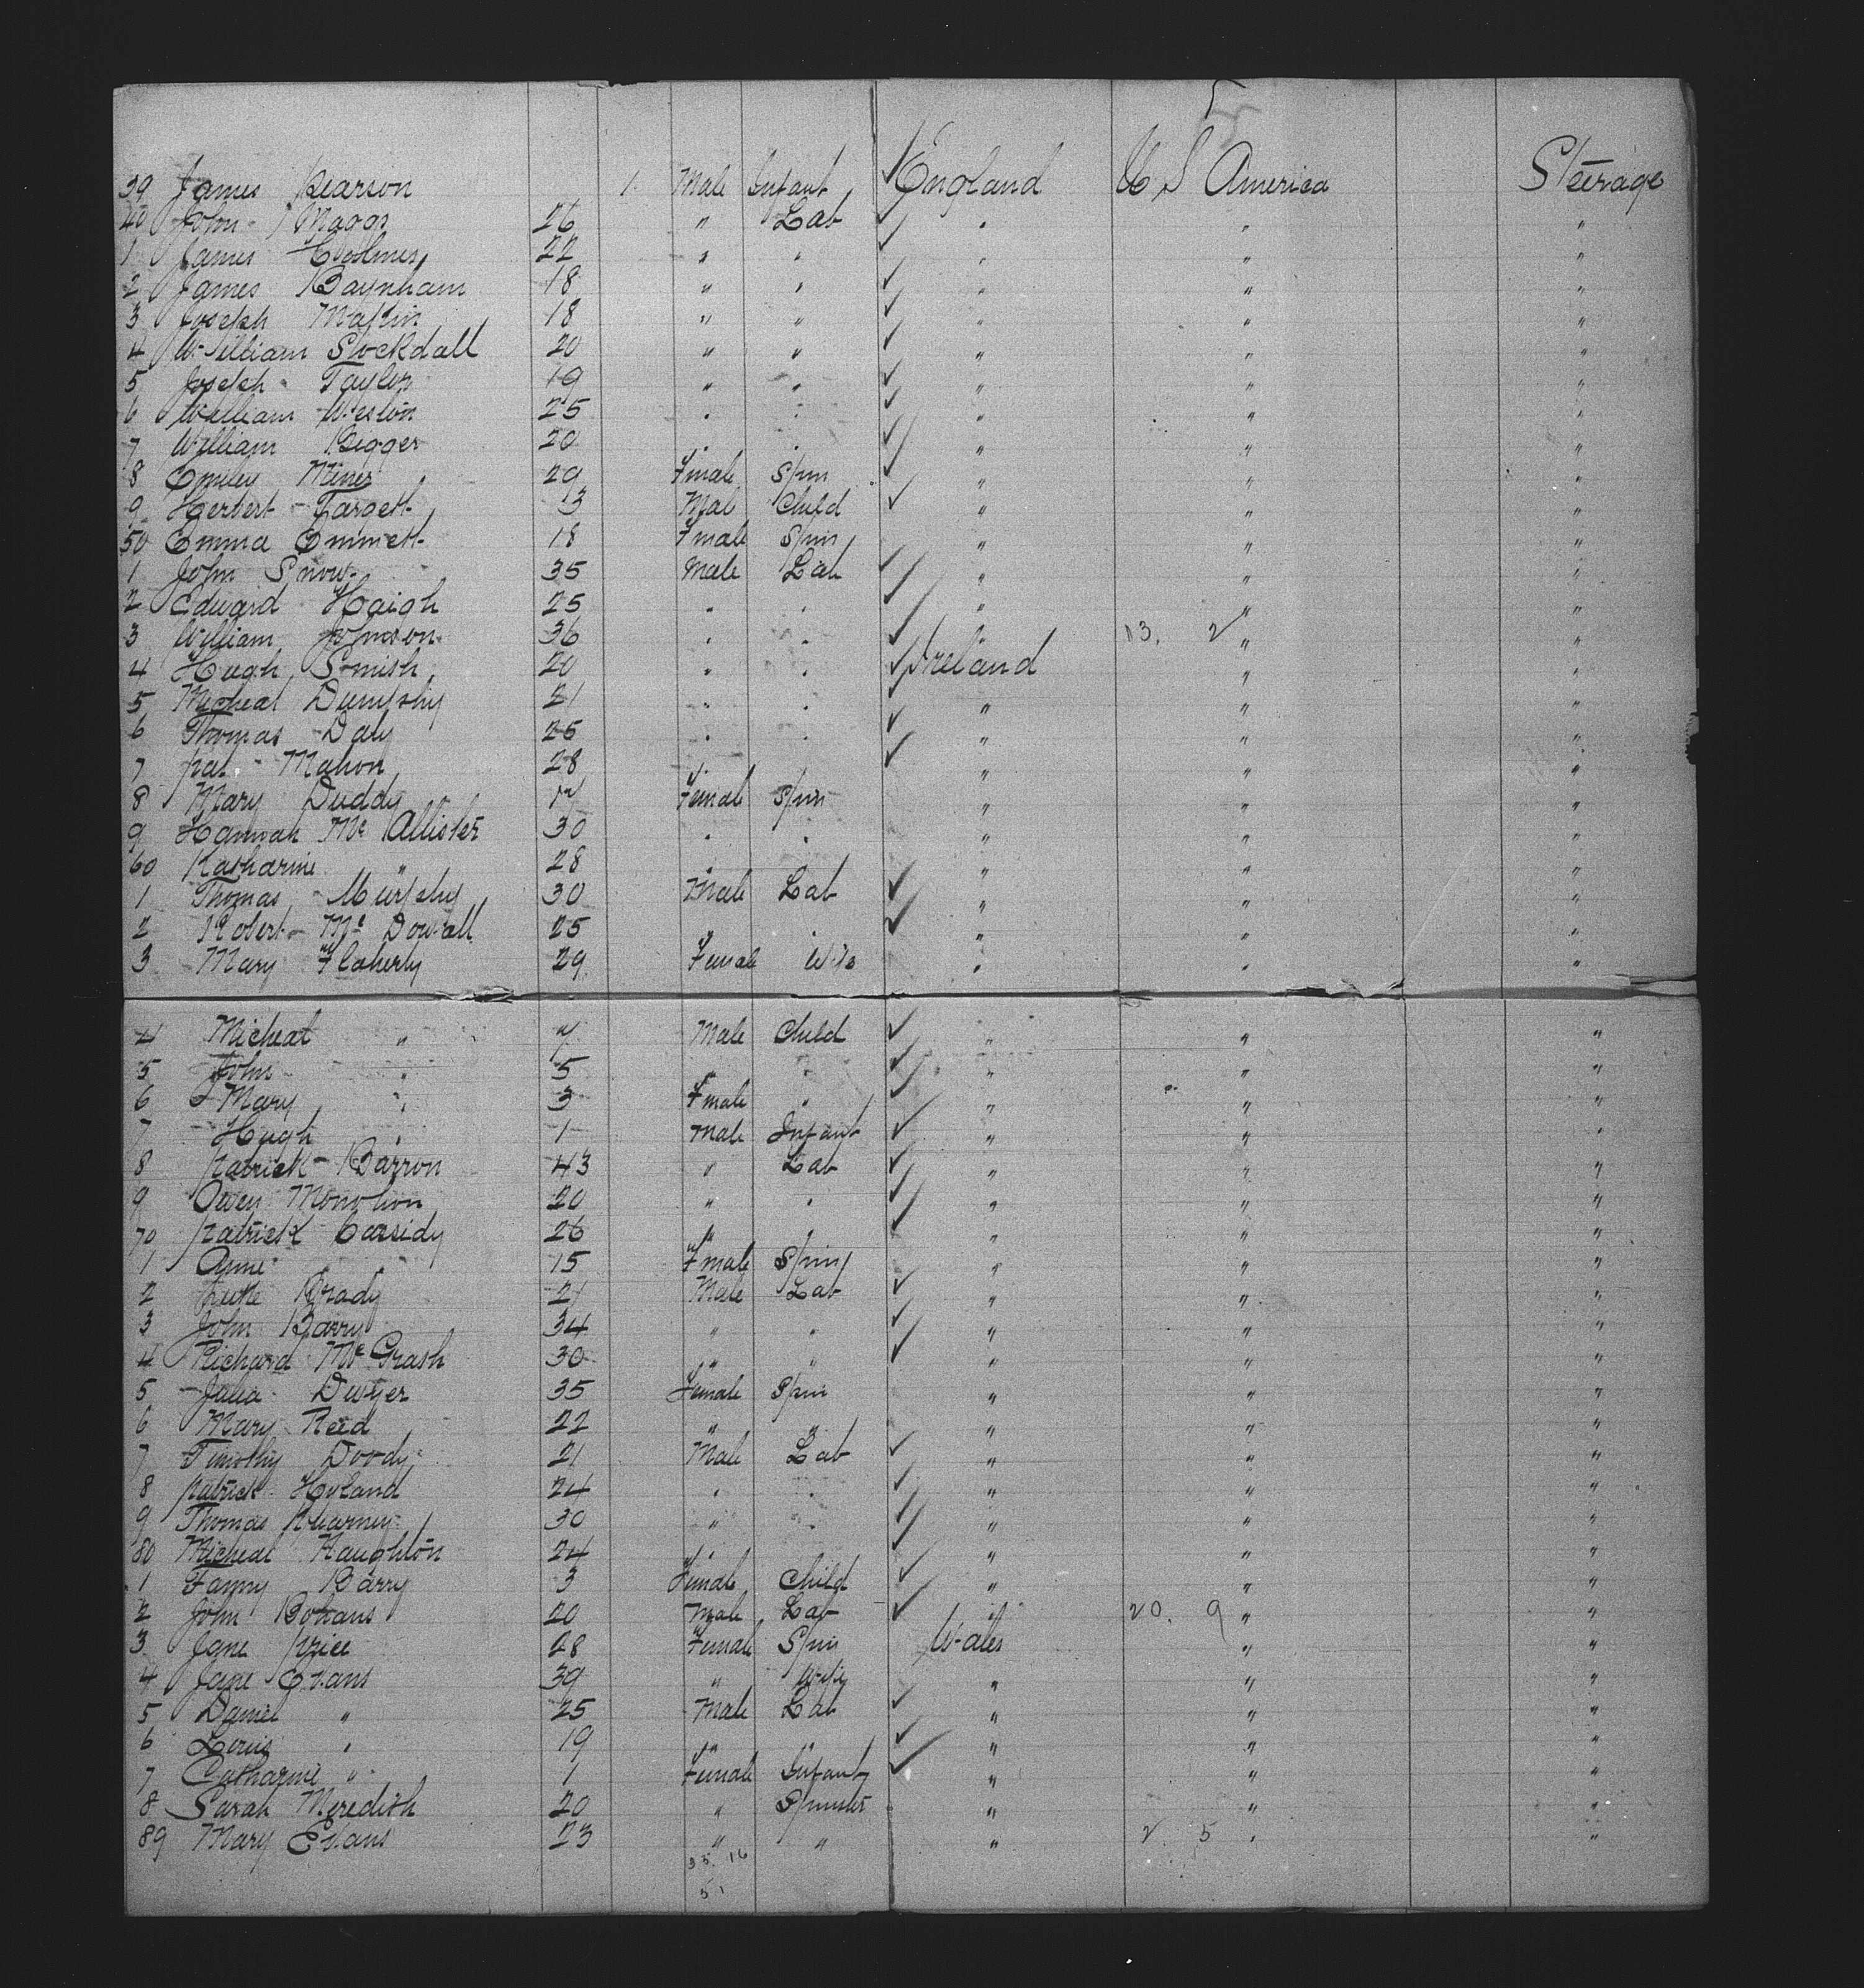 5
39 James Pearson 1 Male Infant England U S America Steerage
40 John Maggs 26 " Lab " " "
1 James Holmes 22 " " " " "
2 James Baynham 18 " " " " "
3 Joseph 18 " " " " "
4 William Stockdall 20 " " " " "
5 Joseph Tayler 19 " " " " "
6 William Weston 25 " " " " "
7 William Bigger 20 " " " " "
8 Emiley Miner 29 Fmale Spin " " "
9 Herbert Targett 13 Mal Child " " "
50 Emma Emmett 18 Fmale Spin " " "
1 John Snow 35 Male Lab " " "
2 Edward Haigh 25 " " " " "
3 William Johnson 36 " " " 13. 2 " "
4 Hugh Smish 20 " " Ireland " "
5 Micheal Dumpshy 21 " " " " "
6 Thomas Daly 25 " " " " "
7 Pat Mahon 28 " " " " "
8 Mary Duddy 17 Female Spin " " "
9 Hannah Mc Allister 30 " " " " "
60 Katharine " 28 " " " " "
1 Thomas Murphy 30 Male Lab " " "
2 Robert Mc Dowall 25 " " " " "
3 Mary Flaherty 29 Female Wife " " "
4 Micheal " 7 Male Child " " "
5 John " 5 " " " " "
6 Mary " 3 Fmale " " " "
7 Hugh " 1 Male Infant " " "
8 Patrick Barron 43 " Lab " " "
9 Owen Monohon 20 " " " " "
70 Patrick Cassidy 26 " " " " "
1 Anne " 15 Fmale Spin " " "
2 Luke Brady 21 Male Lab " " "
3 John Barry 34 " " " " "
4 Richard Mc Grash 30 " " " " "
5 Julia Dwyer 35 Female Spin " " "
6 Mary Reed 22 " " " " "
7 Timothy Doody 21 Male Lab " " "
8 Patrick Hyland 24 " " " " "
9 Thomas Kearney 30 " " " " "
80 Micheal Naughton 24 " " " " "
1 Fanny Barry 3 Female Child " " "
2 John Bohans 20 Male Lab " 20. 9 " "
3 Jane Price 28 Female Spin Wales " "
4 Jane Evans 39 " Wife " " "
5 Daniel " 25 Male Lab " " "
6 Lewis " 19 " " " " "
7 Catharine " 1 Female Infant " " "
8 Sarah Meredith 20 " Spinster " " "
89 Mary Evans 23 " " " 2. 5 " "
35. 16
51